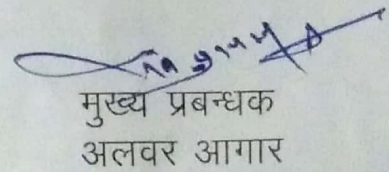 मुख्य प्रबन्धक
अलवर आगार